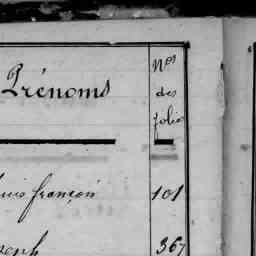 Prénoms
Nos
des
folios
Louis françois 101
Joseph 367